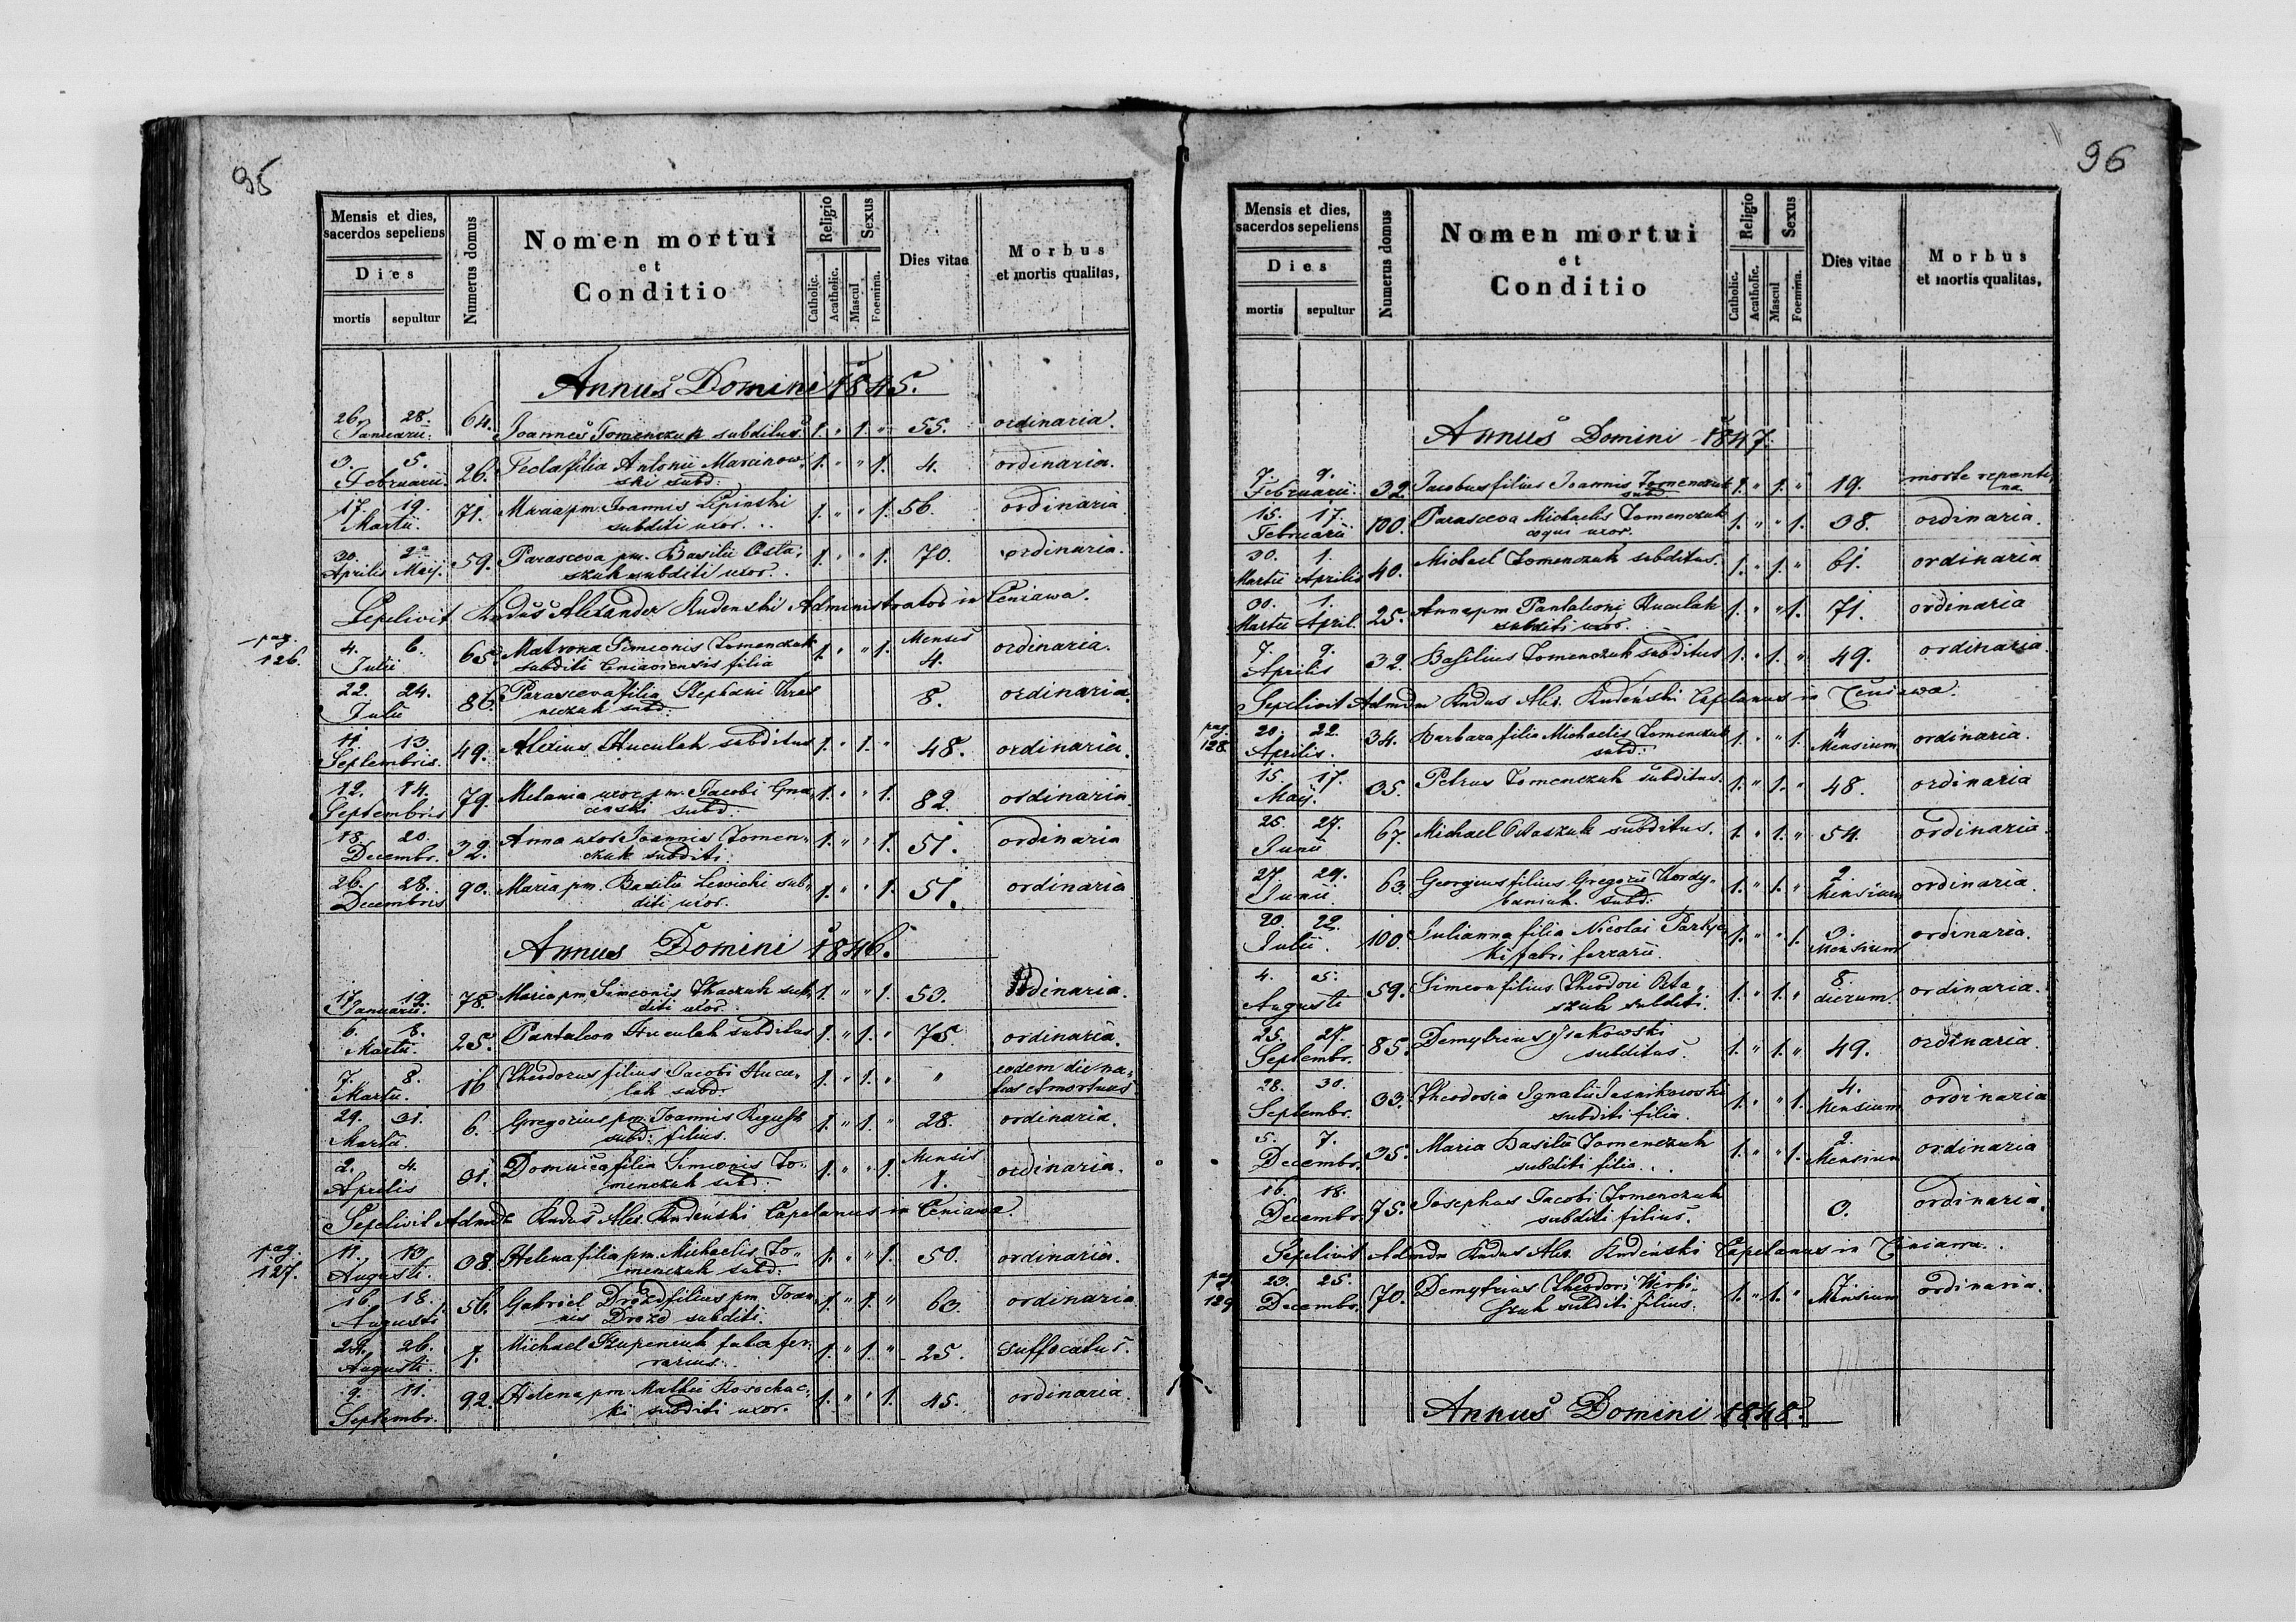 95
Mensis et dies,
sacerdos sepeliens
Dies
mortis sepultur
Numerus domus
Nomen mortui
et
Conditio
Religio
Catholic.
Acatholic.
Sexus
Mascul
Foemina.
Dies vitae
Morbus
et mortis qualitas,
Annus Domini 1845.
26. 28. 64. Joannes Tomenczuk subditus. 1. " 1. " 55. ordinaria.
Januarii.
3. 5. 26. Tecla filia Antonii Marcinow- 1. " " 1. 4. ordinaria.
Februarii. ski subd:
17. 19. 71. Maria pm. Joannis Lipinski 1. " " 1. 56. ordinaria
Martii. subditi uxor.
30. 2. 59. Parasceva pm. Basilii Osta- 1. " " 1. 70. ordinaria.
Aprilis Maij. szuk subditi uxor.
Sepelivit Rndus Alexander Rudenski Administrator in Ceniawa.
pag. 126.
4. 6. 65. Matrona Simeonis Tomenczuk 1. " " 1. Menses 4. ordinaria.
Julii subditi Ceniaviensis filia
22. 24. 86. Parasceva filia Stephani 8. ordinaria
Julii subd:
11. 13. 49. Alexius Huculak subditus 1. " 1. " 48. ordinaria.
Septembris.
12. 14. 79. Melania uxor pm. Jacobi 1. " " 1. 82. ordinaria
Septembris subd:
18. 20. 32. Anna uxor Joannis Tomen- 1. " " 1. 51. ordinaria
Decembr. czuk subditi.
26. 28. 90. Maria pm. Basilii Lewicki sub- 1. " " 1. 51. ordinaria
Decembris diti uxor.
Annus Domini 1846.
17. 19. 78. Maria pm. Simeonis Tkaczuk sub- 1. " " 1. 53. ordinaria.
Januarii. diti uxor.
6. 8. 25. Pantaleon Huculak subditus 1. " 1. " 75. ordinaria.
Martii.
7. 8. 16 Theodorus filius Jacobi Hucu- 1. " 1. " " eodem die na-
Martii. lak subd. tus et mortuus
29. 31. 6. Gregorius pm. Joannis 1. " 1. " 28. ordinaria.
Martii. subd: filius.
2. 4. 31. Domnica filia Simeonis To- 1. " " 1. Mensis 1. ordinaria.
Aprilis menczuk subd:
Sepelivit Admdn Rndus Alex. Rudeński Capelanus in Ceniawa.
pag. 127.
11. 13. 38. Helena filia pm. Michaelis To- 1. " " 1. 50. ordinaria.
Augusti. menczuk subd:
16. 18. 56. Gabriel Drozd filius pm. Joan- 1. " 1. " 63. ordinaria
Augusti nis Drozd subditi.
24. 26. 7. Michael faba fer- 1. " 1. " 25. suffocatus.
Augusti. rarius.
9. 11. 92. Helena pm. Mathei Rosochac- 1. " " 1. 45. ordinaria.
Septembr. ki subditi uxor.
96
Mensis et dies,
sacerdos sepeliens
Dies
mortis sepultur
Numerus domus
Nomen mortui
et
Conditio
Religio
Catholic.
Acatholic.
Sexus
Mascul
Foemina.
Dies vitae
Morbus
et mortis qualitas,
Annus Domini 1847.
7. 9. 32. Jacobus filius Joannis Tomenczuk 1. " 1. " 19. morte repenti-
Februarii. subd. na.
15. 17. 100. Parasceva Michaelis Tomenczuk 1. " " 1. 38. ordinaria.
Februarii coqui uxor.
30. 1. 40. Michael Tomenczuk subditus. 1. " 1. " 61. ordinaria
Martii Aprilis
30. 1. 25. Anna pm Pantaleoni Huculak 1. " " 1. 71. ordinaria
Martii April. subditi uxor.
7. 9. 32. Basilius Tomenczuk subditus 1. " 1. " 49. ordinaria
Aprilis
Sepelivit Admdn Rndus Alex. Rudeński Capelanus in Ceniawa.
pag. 128.
20. 22. 34. Barbara filia Michaelis Tomenczuk 1. " " 1. 4 Mensium ordinaria.
Aprilis. subd.
15. 17. 35. Petrus Tomenczuk subditus. 1. " 1. " 48. ordinaria
Maij.
25. 27. 67. Michael Ostaszuk subditus. 1. " 1. " 54. ordinaria.
Junii
27. 29. 63. Georgius filius Gregorii Kordy- 1. " 1. " 2. Mensium ordinaria.
Junii. baniuk. subd:
20. 22. 100. Julianna filia Nicolai 1. " " 1. 3. Mensium ordinaria.
Julii. ki fabri ferrarii.
4. 5. 59. Simeon filius Theodori Osta- 1. " 1. " 8. dierum. ordinaria.
Augusti szuk subditi.
25. 27. 85. Demytrius 1. " 1. " 49. ordinaria.
Septembr. subditus.
28. 30. 33. Theodosia Ignatii Jasnikowski 1. " " 1. 4. Mensium ordinaria
Septembr. subditi filia.
5. 7. 35. Maria Basilii Tomenczuk 1. " " 1. 2. Mensium ordinaria
Decembr. subditi filia.
16. 18. 75. Josephus Jacobi Tomenczuk 3. ordinaria.
Decembr. subditi filius.
Sepelivit Admdn Rndus Alex. Rudeński Capelanus in Ceniawa.
pag. 129
23. 25. 70. Demytrius Theodori Werbi- 1. " 1. " 7. Mensium ordinaria.
Decembr. szuk subditi filius.
Annus Domini 1848.